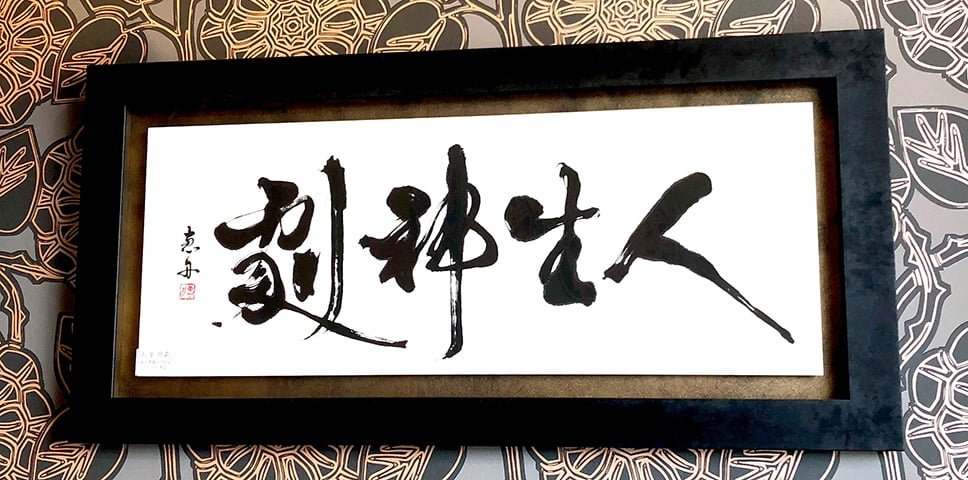 人生神劇
恵舟